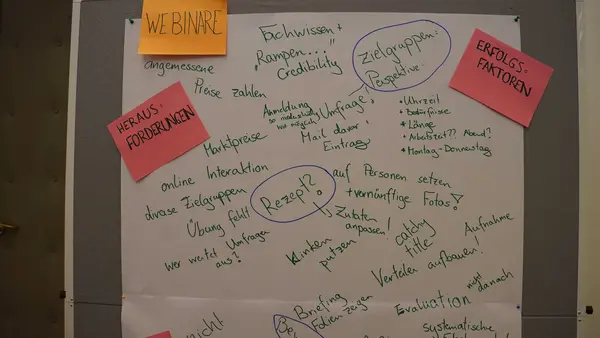 WEBINARE
Fachwissen +
"Rampen..."
Credibility
Zielgruppen-
Perspektive
ERFOLGS-
FAKTOREN
angemessene
Preise zahlen
HERAUS-
FORDERUNGEN
Marktpreise
Anmeldung
so niederschwellig
wie möglich
Umfrage!
Mail davor!
Eintrag
• Uhrzeit
• Bedürfnisse
• Länge
• Arbeitszeit?? Abend?
• Montag - Donnerstag
online Interaktion
diverse Zielgruppen
Übung fehlt
wer wertet Umfragen
aus?
Rezept?
auf Personen setzen
+ vernünftige Fotos!
Zutaten
anpassen!
Klinken
putzen
catchy
title
Aufnahme
Verteiler aufbauen!
nicht
danach
Briefing
Folien zeigen
Evaluation
systematische
nicht